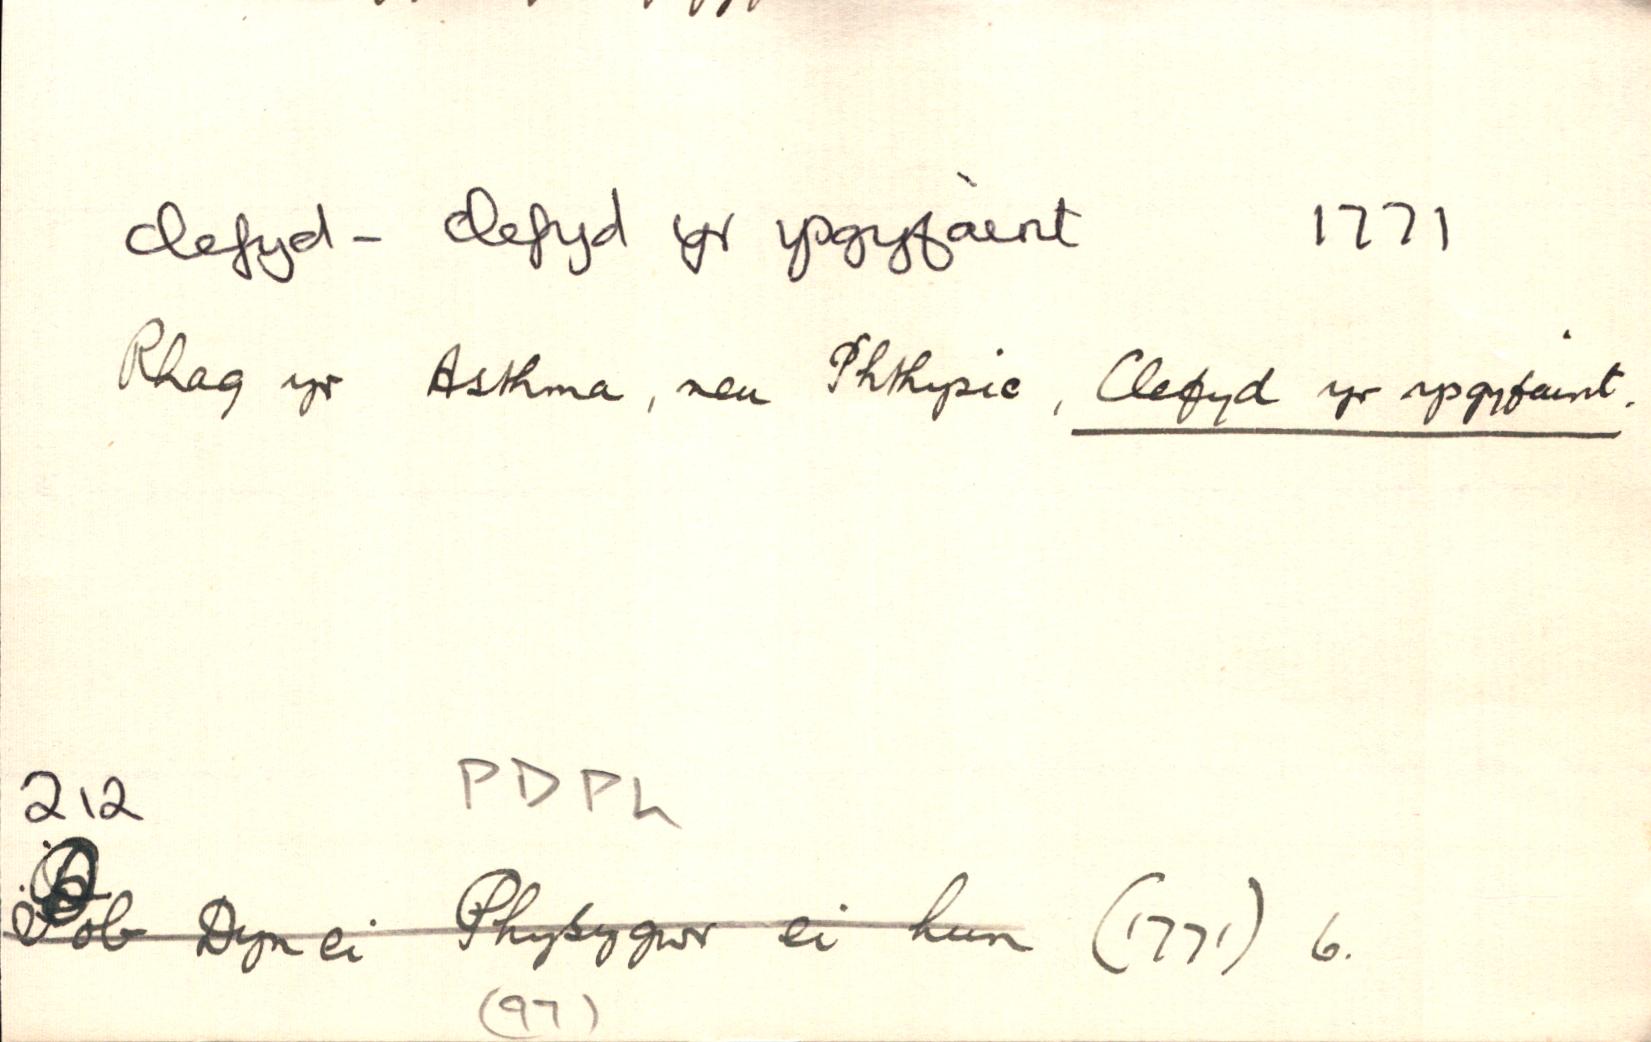 clefyd - clefyd yr ysgyfàint 1771
Rhag yr Asthma, neu Phthysic, Clefyd yr ysgyfaint.
212 PDPh
Pob Dyn ei Physygwr ei hun (1771) 6.
(97)